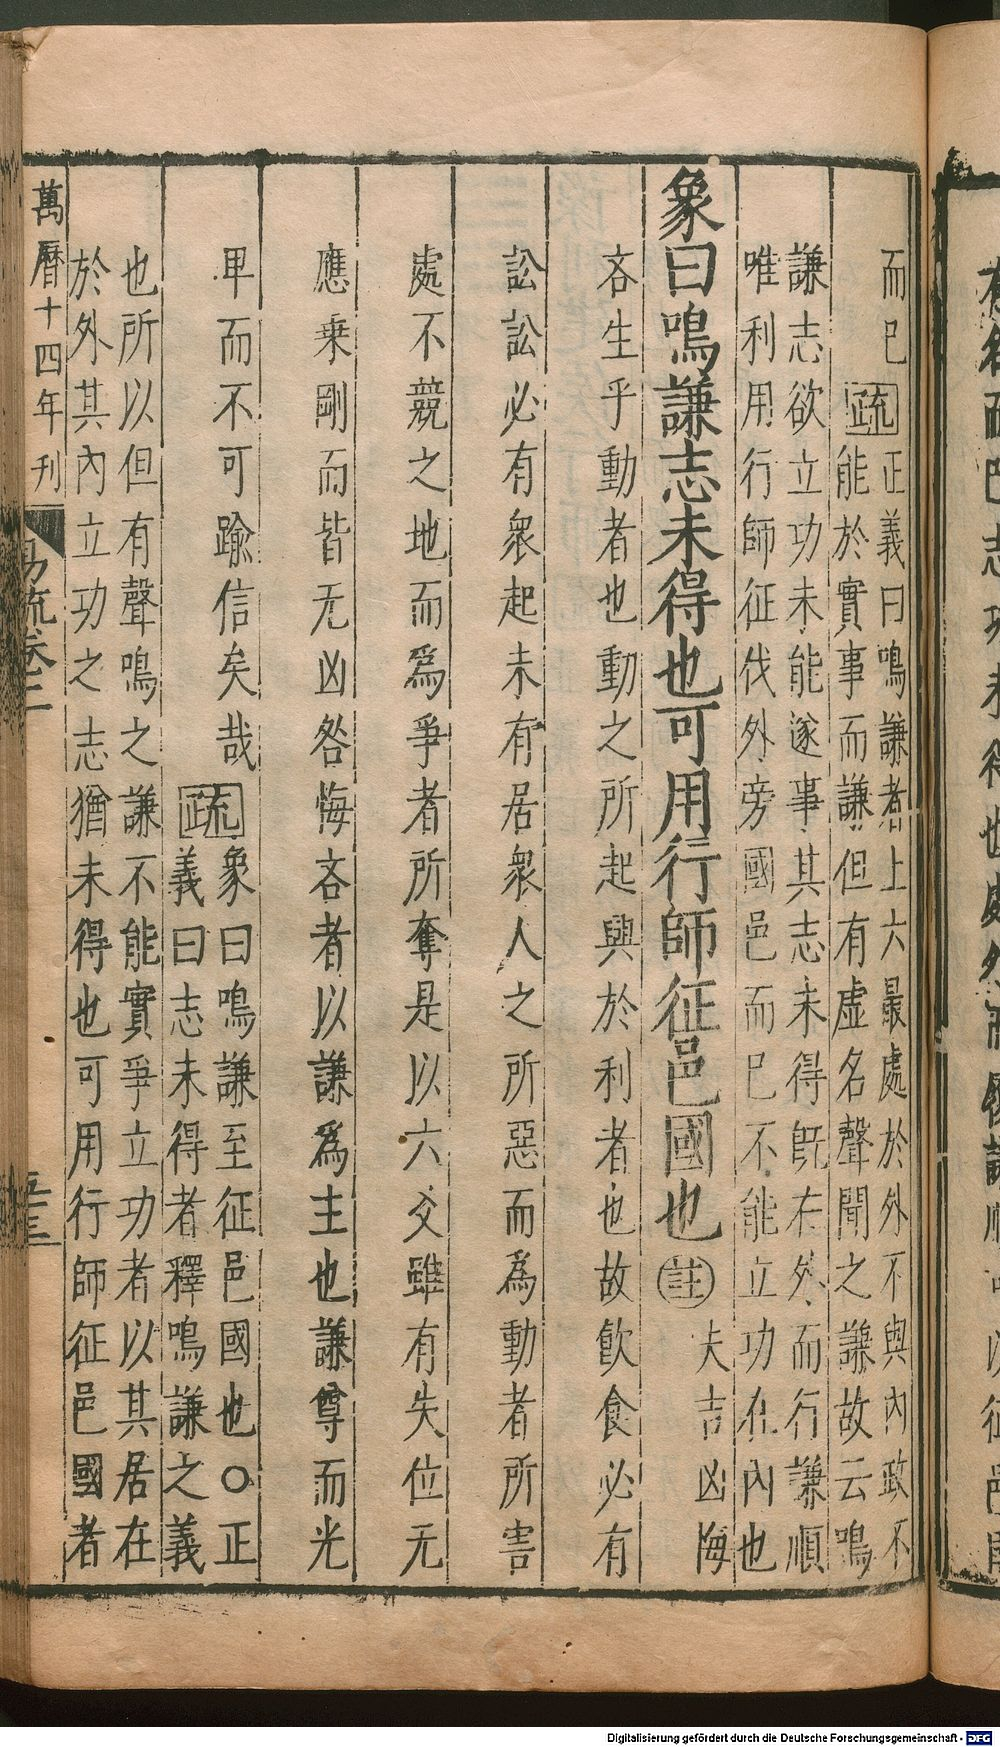 而巳
疏
正義曰鳴謙者上六最處於外不與內政不
能於實事而謙但有虛名聲聞之謙故云鳴
謙志欲立功未能遂事其志未得旣在外而行謙順
唯利用行師征伐外旁國邑而巳不能立功在內也
象曰鳴謙志未得也可用行師征邑國也
註
夫吉凶悔
吝生乎動者也動之所起興於利者也故飮食必有
訟訟必有衆起未有居衆人之所惡而爲動者所害
處不競之地而爲爭者所奪是以六爻雖有失位无
應乗剛而皆无凶咎悔吝者以謙爲主也謙尊而光
卑而不可踰信矣哉
疏
象曰鳴謙至征邑國也○正
義曰志未得者釋鳴謙之義
也所以但有聲鳴之謙不能實爭立功者以其居在
於外其內立功之志猶未得也可用行師征邑國者
萬曆十四年刊
易疏卷二
Digitalisierung gefördert durch die Deutsche Forschungsgemeinschaft - DFG